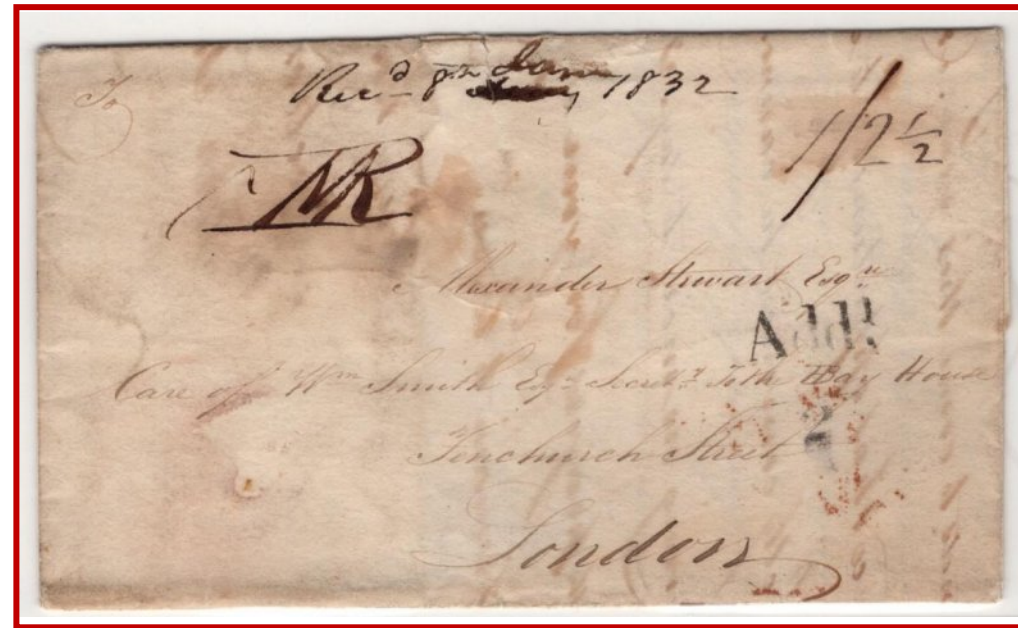 To
Recd 8th Jany 1832
NR
1/2 1/2
Alexander Stewart Esqre
Addl
Care of Wm Smith Esqr Secrety To the Bay House
2
Fenchurch Street
London